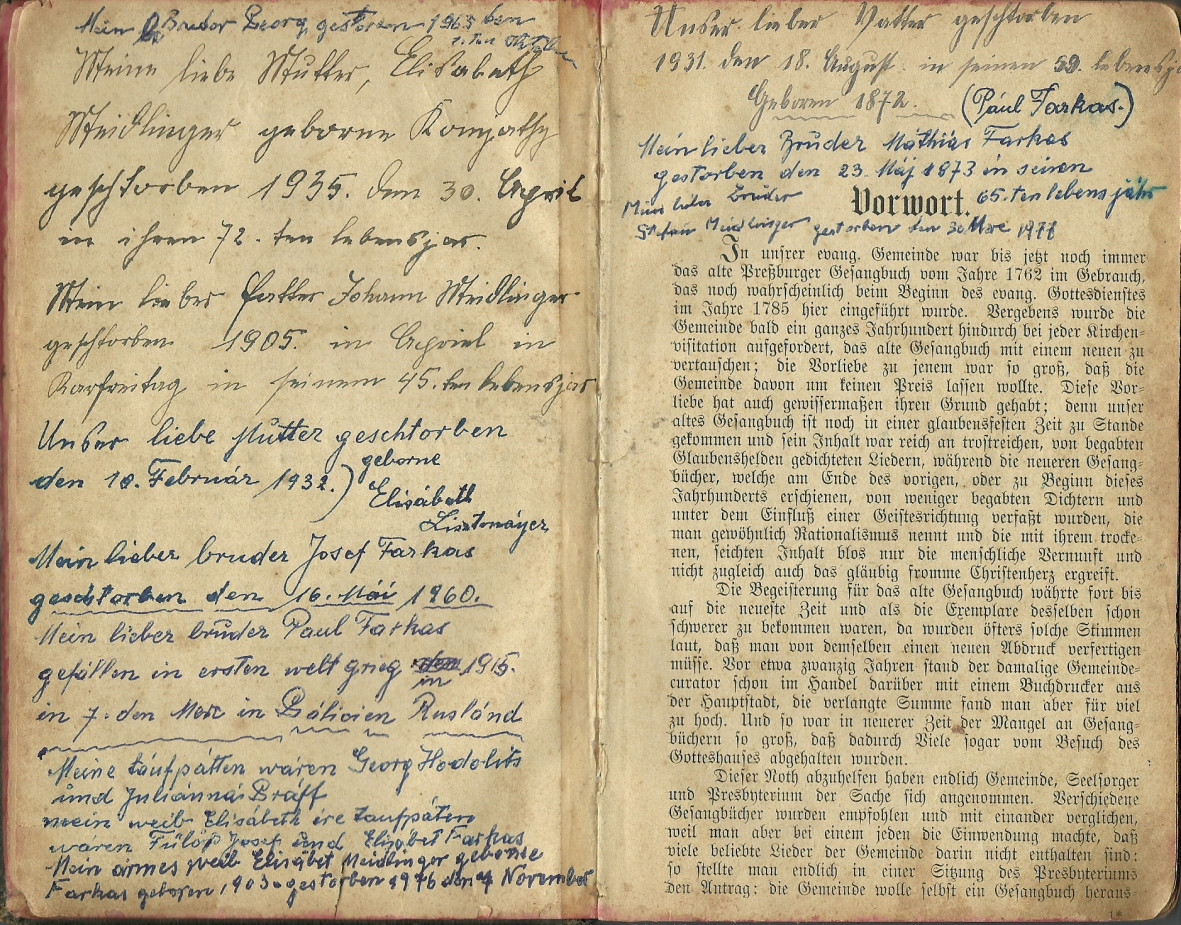 Mein Bruder Georg gestorben 1965 den
1. ten
Meine liebe Mutter, Elisabeth
Meidlinger geborne
geschtorben 1935. den 30. April
in ihren 72. ten lebensjar.
Mein lieber fatter Johann Meidlinger
geschtorben 1905. in Apriel in
Karfreitag in seinem 45. ten lebensjar
Unser liebe Mutter geschtorben
den 18. Február 1932.) geborne
Elisábeth
Lisztmáyer
Mein lieber bruder Josef Farkas
geschtorben den 16. Mái 1960.
Mein lieber bruder Paul Farkas
gefállen in ersten welt grieg in 1915.
in 7. den Merz in Gálicien Ruslánd
Meine taufpátten wáren Georg Hodolits
und Juliánná Bráff
mein weib Elisábeth ire taufpáten
wáren Fülöp Josef und Elisábet Farkas
Mein armes weib Elisábet Meidlinger geborne
Farkas geboren 1903 gestorben 1976 den 4 November
Unser lieber Vatter geschtorben
1931. den 18. August. in seinen 59. lebensja
Geboren 1872. (Pául Farkas.)
Mein lieber Bruder Máthiás Farkas
gestorben den 23. Máj 1973 in seinen
65. ten lebens jáhr
Mein lieber Bruder
Stefan Meidlinger gestorben den 30 1977
Vorwort.
In unsrer evang. Gemeinde war bis jetzt noch immer
das alte Preßburger Gesangbuch vom Jahre 1762 im Gebrauch,
das noch wahrscheinlich beim Beginn des evang. Gottesdienstes
im Jahre 1785 hier eingeführt wurde. Vergebens wurde die
Gemeinde bald ein ganzes Jahrhundert hindurch bei jeder Kirchen-
visitation aufgefordert, das alte Gesangbuch mit einem neuen zu
vertauschen; die Vorliebe zu jenem war so groß, daß die
Gemeinde davon um keinen Preis lassen wollte. Diese Vor-
liebe hat auch gewissermaßen ihren Grund gehabt; denn unser
altes Gesangbuch ist noch in einer glaubensfesten Zeit zu Stande
gekommen und sein Inhalt war reich an trostreichen, von begabten
Glaubenshelden gedichteten Liedern, während die neueren Gesang-
bücher, welche am Ende des vorigen, oder zu Beginn dieses
Jahrhunderts erschienen, von weniger begabten Dichtern und
unter dem Einfluß einer Geistesrichtung verfaßt wurden, die
man gewöhnlich Rationalismus nennt und die mit ihrem trocke-
nen, seichten Inhalt blos nur die menschliche Vernunft und
nicht zugleich auch das gläubig fromme Christenherz ergreift.
Die Begeisterung für das alte Gesangbuch währte fort bis
auf die neueste Zeit und als die Exemplare desselben schon
schwerer zu bekommen waren, da wurden öfters solche Stimmen
laut, daß man von demselben einen neuen Abdruck verfertigen
müsse. Vor etwa zwanzig Jahren stand der damalige Gemeinde-
curator schon im Handel darüber mit einem Buchdrucker aus
der Hauptstadt, die verlangte Summe fand man aber für viel
zu hoch. Und so war in neuerer Zeit der Mangel an Gesang-
büchern so groß, daß dadurch Viele sogar vom Besuch des
Gotteshauses abgehalten wurden.
Dieser Noth abzuhelfen haben endlich Gemeinde, Seelsorger
und Presbyterium der Sache sich angenommen. Verschiedene
Gesangbücher wurden empfohlen und mit einander verglichen,
weil man aber bei einem jeden die Einwendung machte, daß
viele beliebte Lieder der Gemeinde darin nicht enthalten sind:
so stellte man endlich in einer Sitzung des Presbyteriums
den Antrag: die Gemeinde wolle selbst ein Gesangbuch heraus-
1*